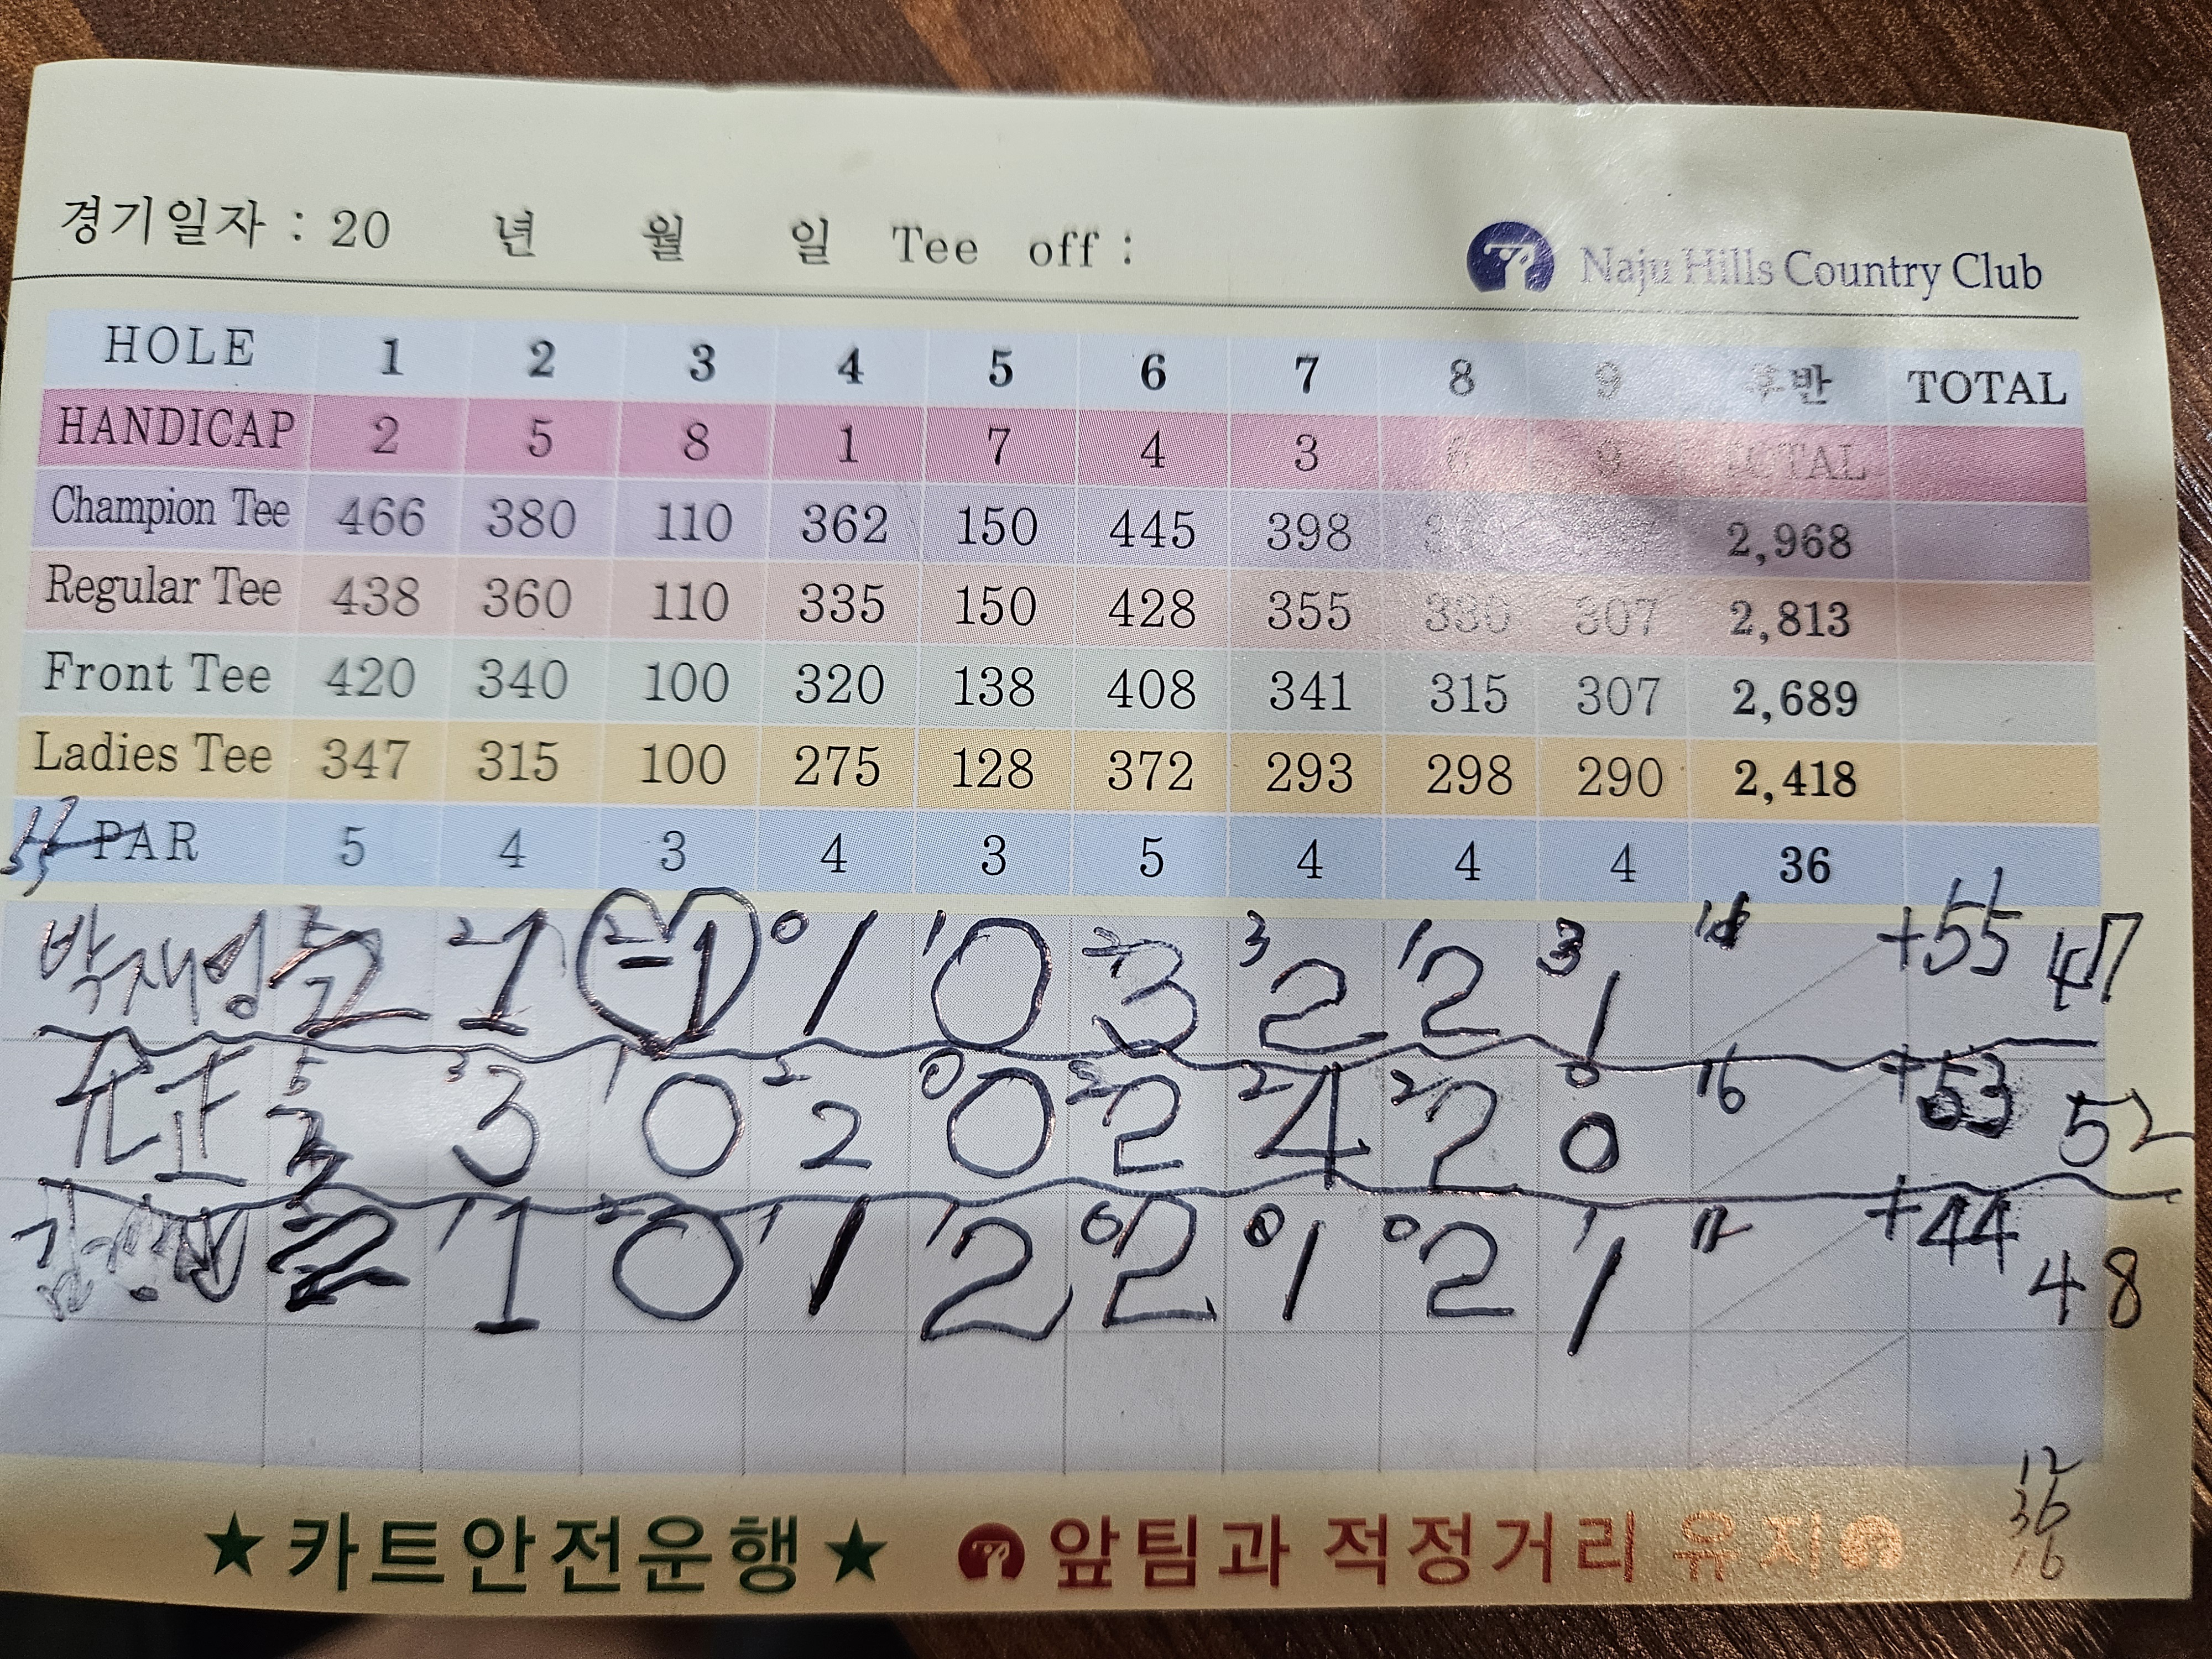 경기일자 : 20 년 월 일 Tee off :
Naju Hills Country Club
HOLE 1 2 3 4 5 6 7 8 9 후반 TOTAL
HANDICAP 2 5 8 1 7 4 3 6 9 TOTAL
Champion Tee 466 380 110 362 150 445 398 2,968
Regular Tee 438 360 110 335 150 428 355 330 307 2,813
Front Tee 420 340 100 320 138 408 341 315 307 2,689
Ladies Tee 347 315 100 275 128 372 293 298 290 2,418
PAR 5 4 3 4 3 5 4 4 4 36
2 2 0 1 2 3 1 3 +55
박재영 2 1 -1 1 0 3 2 2 1 47
5 3 1 2 0 2 2 2 0 16 +53
3 0 2 0 2 4 2 0 52
1 2 1 1 0 0 0 1 12 +44
2 1 0 1 2 2 1 2 1 48
12
36
16
★카트안전운행★ 앞팀과 적정거리 유지